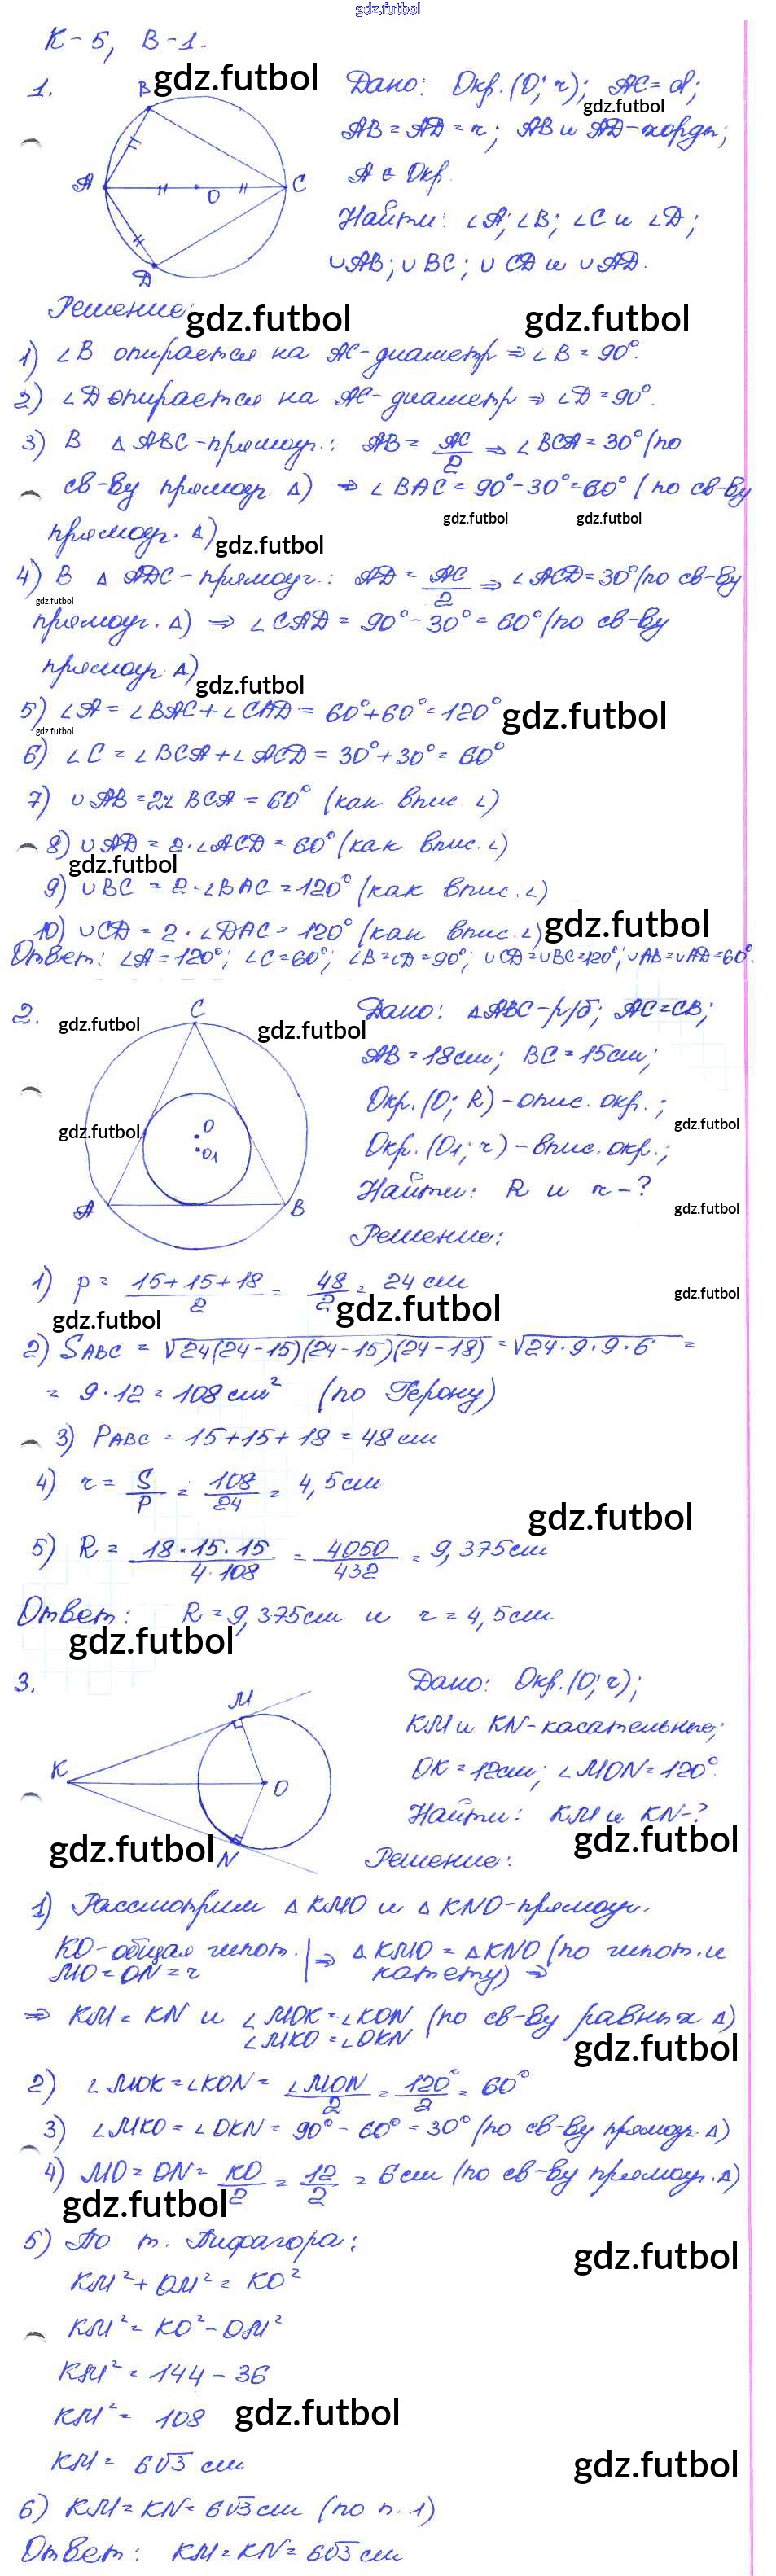 gdz.futbol
К-5, В-1.
1. B gdz.futbol Дано: Окр.(О; r); AC = d;
gdz.futbol
AB = AD = r; AB и AD-хорды;
A C O
A ∈ Окр.
Найти: ∠A; ∠B; ∠C и ∠D;
D
∪AB; ∪BC; ∪CD и ∪AD.
Решение: gdz.futbol gdz.futbol
1) ∠B опирается на AC-диаметр ⇒ ∠B = 90°.
2) ∠D опирается на AC-диаметр ⇒ ∠D = 90°.
3) В △ABC-прямоуг.: AB = AC/2 ⇒ ∠BCA = 30° (по
св-ву прямоуг. △) ⇒ ∠BAC = 90° - 30° = 60° (по св-ву
gdz.futbol gdz.futbol
прямоуг. △) gdz.futbol
4) В △ADC-прямоуг.: AD = AC/2 ⇒ ∠ACD = 30° (по св-ву
gdz.futbol
прямоуг. △) ⇒ ∠CAD = 90° - 30° = 60° (по св-ву
прямоуг. △) gdz.futbol
5) ∠A = ∠BAC + ∠CAD = 60° + 60° = 120° gdz.futbol
gdz.futbol
6) ∠C = ∠BCA + ∠ACD = 30° + 30° = 60°
7) ∪AB = 2∠BCA = 60° (как впис. ∠)
8) ∪AD = 2·∠ACD = 60° (как впис. ∠)
gdz.futbol
9) ∪BC = 2·∠BAC = 120° (как впис. ∠)
10) ∪CD = 2·∠DAC = 120° (как впис. ∠) gdz.futbol
Ответ: ∠A = 120°; ∠C = 60°; ∠B = ∠D = 90°; ∪CD = ∪BC = 120°; ∪AB = ∪AD = 60°.
2. gdz.futbol C gdz.futbol Дано: △ABC-р/б; AC = CB;
AB = 18 см; BC = 15 см;
Окр.(О; R) - опис. окр.;
gdz.futbol O gdz.futbol
O1 Окр.(О1; r) - впис. окр.;
A B Найти: R и r - ?
gdz.futbol
Решение:
1) p = 15+15+18/2 = 48/2 = 24 см gdz.futbol
gdz.futbol gdz.futbol
2) SABC = √24(24-15)(24-15)(24-18) = √24·9·9·6 =
= 9·12 = 108 см² (по Герону)
3) PABC = 15+15+18 = 48 см
4) r = S/P = 108/24 = 4,5 см
gdz.futbol
5) R = 18·15·15/4·108 = 4050/432 = 9,375 см
Ответ: R = 9,375 см и r = 4,5 см
gdz.futbol
3. Дано: Окр.(О; r);
M
KM и KN-касательные;
K O OK = 12 см; ∠MON = 120°.
Найти: KM и KN - ?
gdz.futbol N gdz.futbol
Решение:
1) Рассмотрим △KMO и △KNO-прямоуг.
KO-общая гипот. | ⇒ △KMO = △KNO (по гипот. и
MO = ON = r катету) ⇒
⇒ KM = KN и ∠MOK = ∠KON (по св-ву равных △)
∠MKO = ∠OKN gdz.futbol
2) ∠MOK = ∠KON = ∠MON/2 = 120°/2 = 60°
3) ∠MKO = ∠OKN = 90° - 60° = 30° (по св-ву прямоуг. △)
4) MO = ON = KO/2 = 12/2 = 6 см (по св-ву прямоуг. △)
gdz.futbol
5) По т. Пифагора: gdz.futbol
KM² + OM² = KO²
KM² = KO² - OM²
KM² = 144 - 36
KM² = 108 gdz.futbol
KM = 6√3 см gdz.futbol
6) KM = KN = 6√3 см (по п. 1)
Ответ: KM = KN = 6√3 см